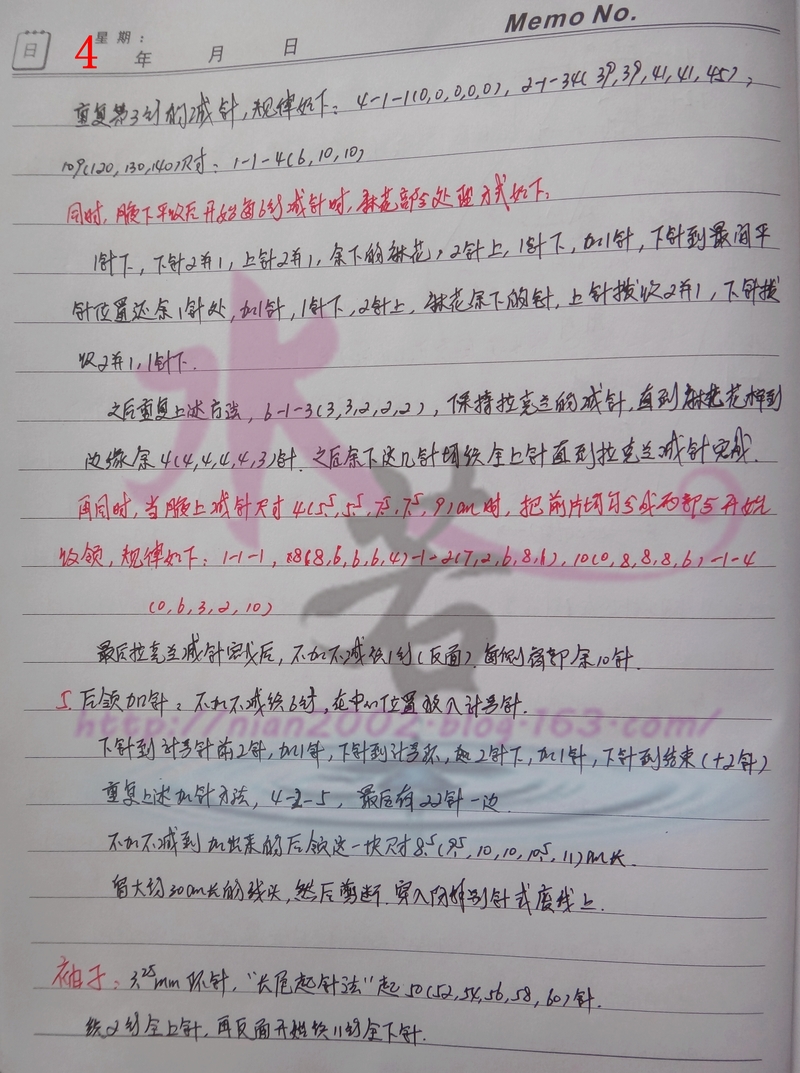 Memo No.
日
4
星期:
年 月 日
重复第3行的减针,规律如下: 4-1-1(0,0,0,0,0), 2-1-34(39,39,41,41,45);
109(120,130,140)尺寸: 1-1-4(6,10,10)
同时,腋下平收后开始每6行减针时,麻花部分处理方式如下:
1针下,下针2并1,上针2并1,余下的麻花,2针上,1针下,加1针,下针到最间平
针位置还余1针处,加1针,1针下,2针上,麻花余下的针,上针拨收2并1,下针拨
收2并1,1针下.
之后重复上述方法, 6-1-3(3,3,2,2,2),保持拉克兰的减针,直到麻花花样到
边缘余4(4,4,4,4,3)针.之后余下这几针切织全上针直到拉克兰减针完成.
再同时,当腋上减针尺寸4(5.5,5.5,7.5,7.5,9)cm时,把前片均匀分成两部分开始
收领,规律如下: 1-1-1, 8(8,6,6,6,4)-1-2(7,2,6,8,6), 10(0,8,8,8,6)-1-4
(0,6,3,2,10)
最后拉克兰减针完成后,不加不减织1行(反面).每侧肩部余10针.
5.后领加针:不加不减织6行,在中心位置放入计号针.
下针到计号针前2针,加1针,下针到计号环, 2针下,加1针,下针到结束(+2针)
重复上述加针方法, 4-2-5, 最后有22针一边.
不加不减到加出来的后领这一块尺寸8.5(9.5,10,10,10.5,11)cm长.
留大约30cm长的线头,然后剪断.穿入防绳别针或废线上.
袖子: 3.25mm环针,"长尾起针法"起50(52,54,56,58,60)针.
织2行全上针,再反面开始织11行全下针.
水若
http://nian2002.blog.163.com/